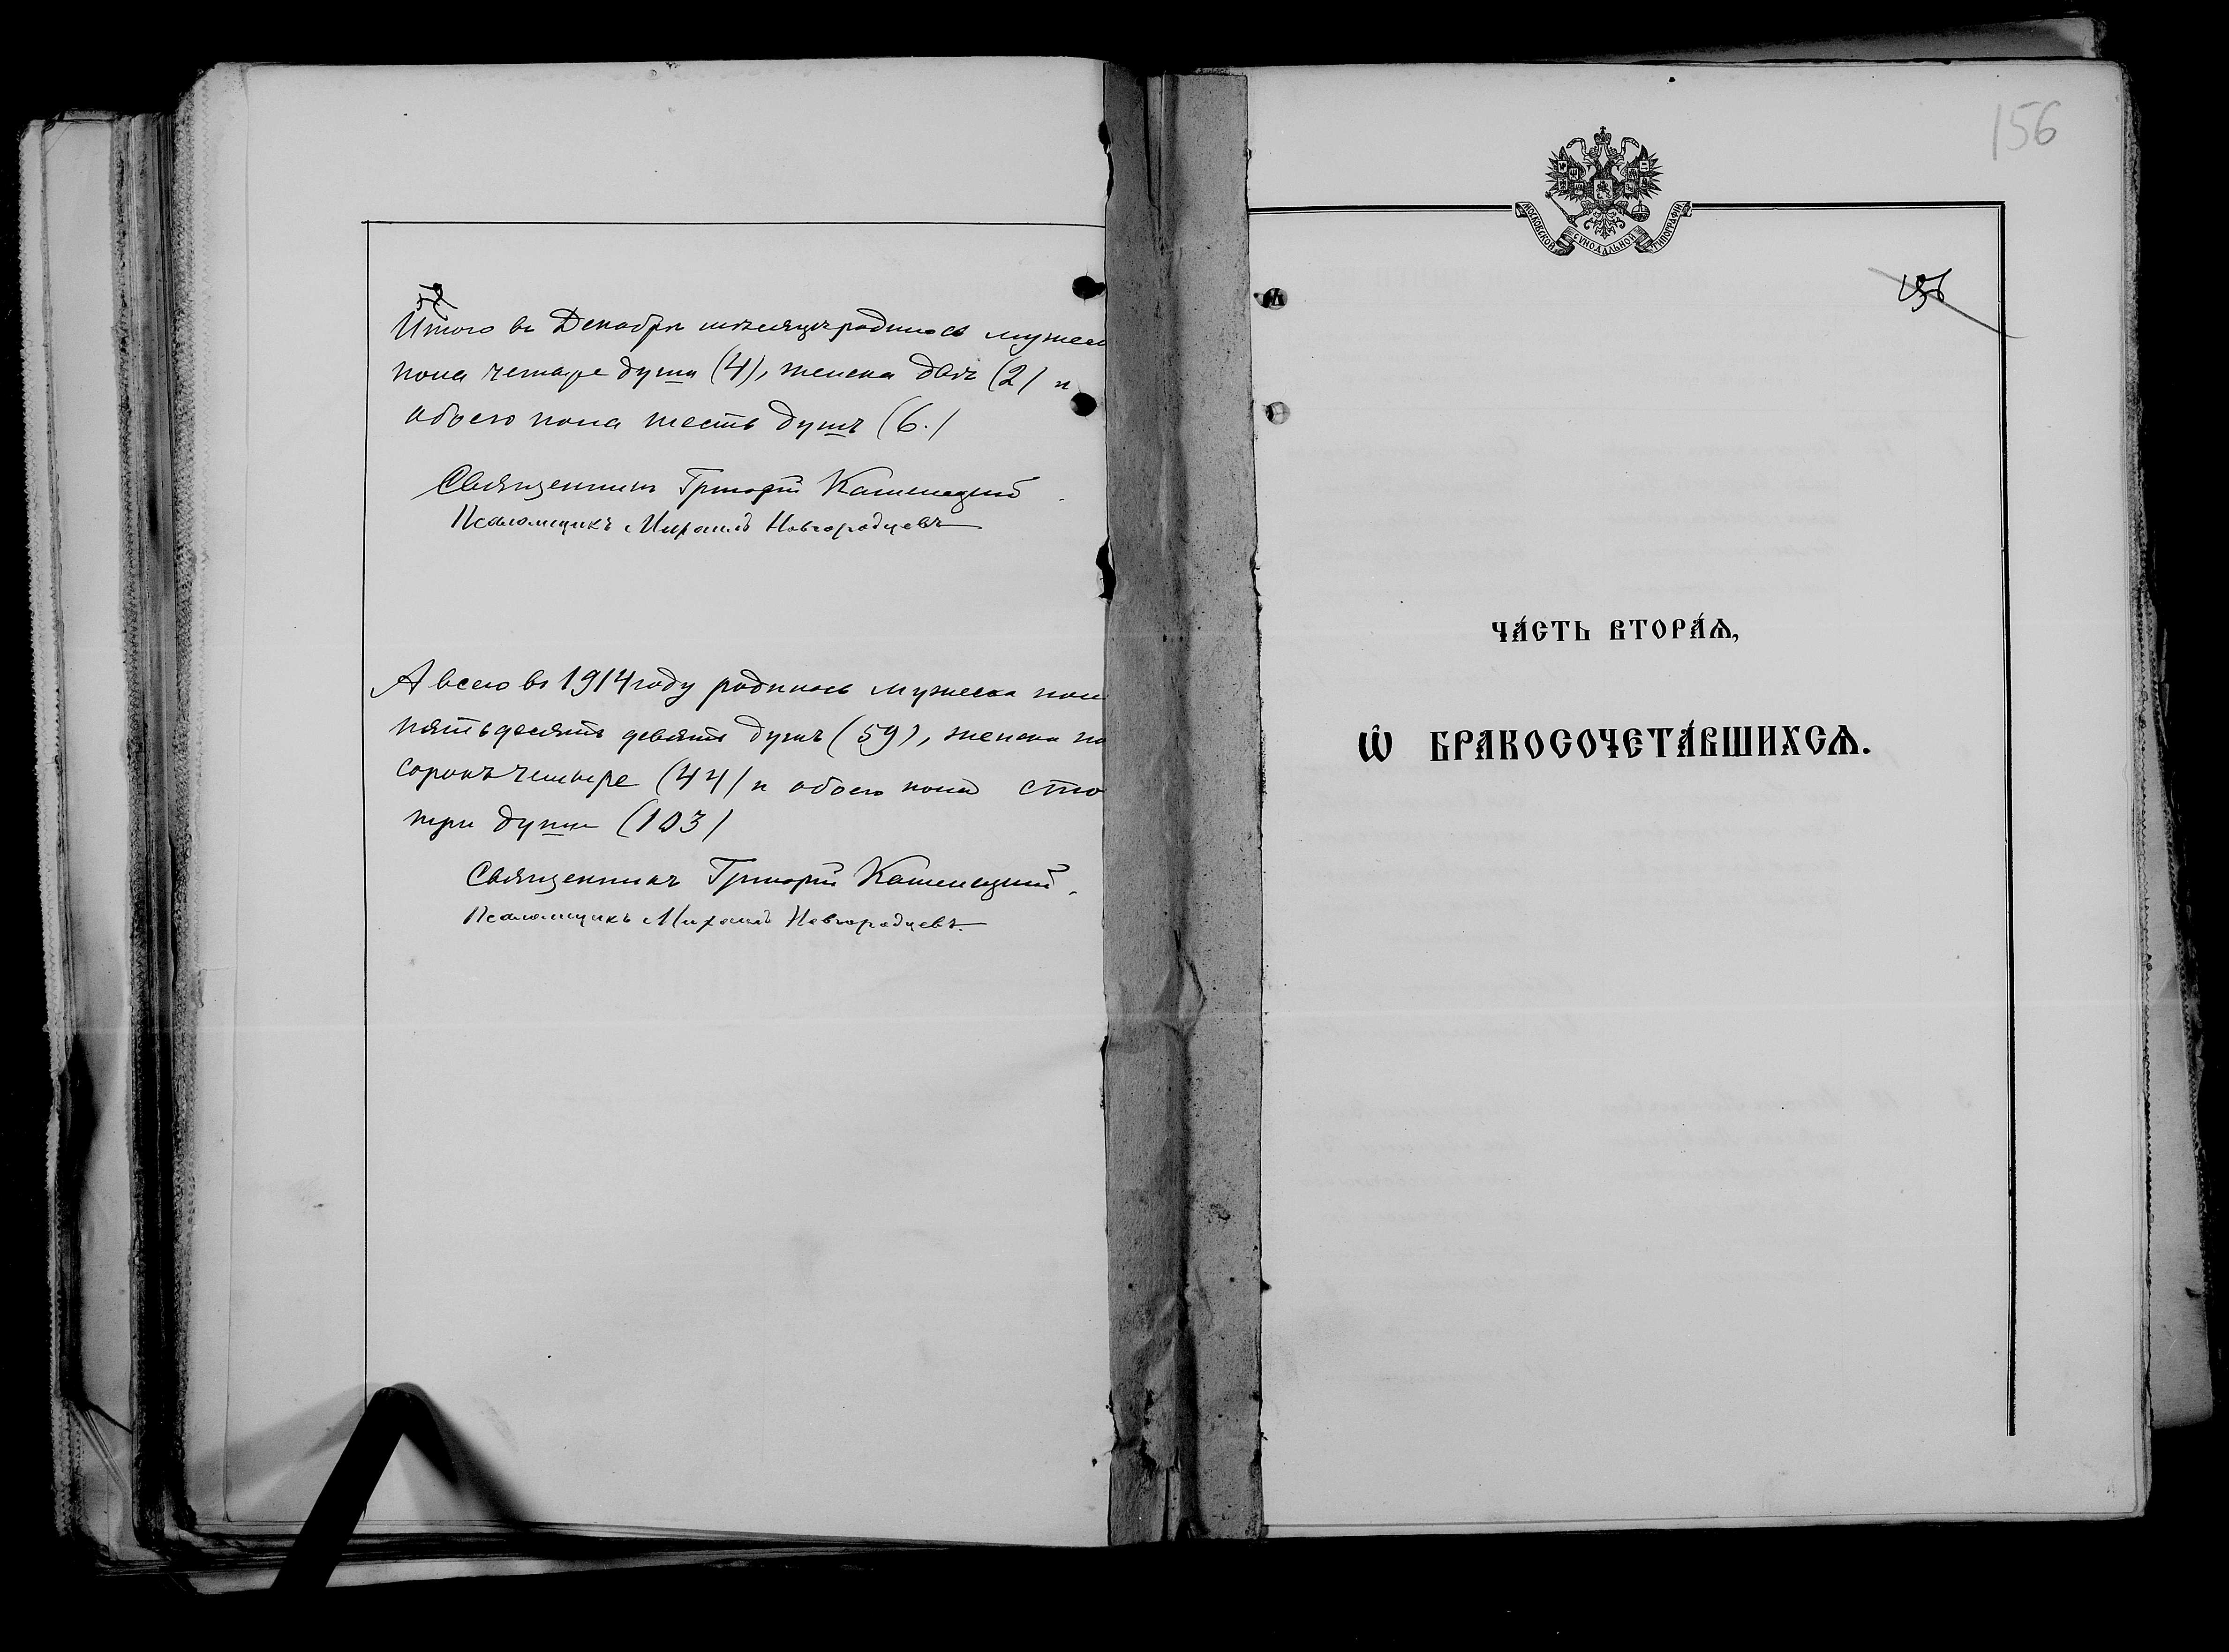 Итого въ Декабрѣ мѣсяцѣ родилось мужеск
пола четыре души (4), женска двѣ (2) и
обоего пола шесть душъ (6.)
Священникъ Григорій Каменецкій
Псаломщикъ Михаилъ Новгородцевъ
А всего въ 1914 году родилось мужеска пол
пятьдесятъ девять душъ (59), женска по
сорокъ четыре (44) и обоего пола сто
три души (103)
Священникъ Григорій Каменецкій.
Псаломщикъ Михаилъ Новгородцевъ.
156
МОСКОВСКОЙ СѴНОДАЛЬНОЙ ТИПОГРАФІИ
ЧА́СТЬ ВТОРА́Ѧ,
Ѽ БРАКОСОЧЕТА́ВШИХСѦ.